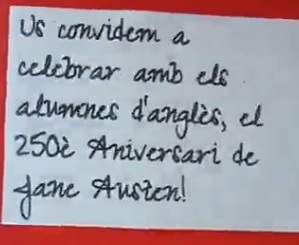 Us convidem a
celebrar amb els
alumnes d'anglès, el
250è Aniversari de
Jane Austen!